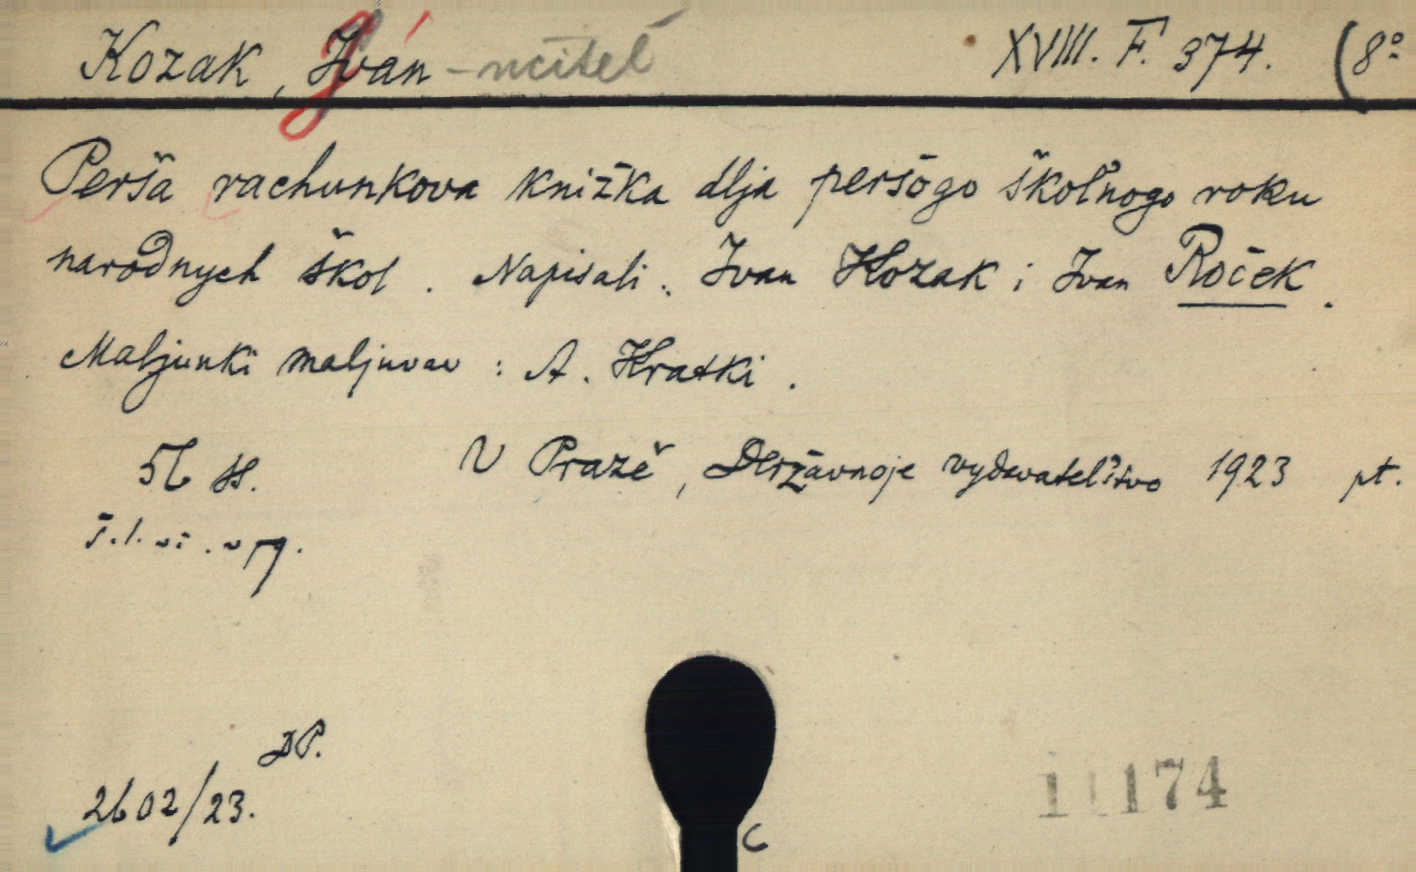 Kozak, Iván - učitel XVIII. F. 374. (8°
Perša rachunkova knižka dlja peršogo školnogo roku
narodnych škol. Napisali: Ivan Kozak i Ivan Roček.
Maljunki maljuvav: A. Kratki.
56 ss. V Prazě, Deržavnoje vydavatelstvo 1923 pt.
DP.
2602/23.
174
C